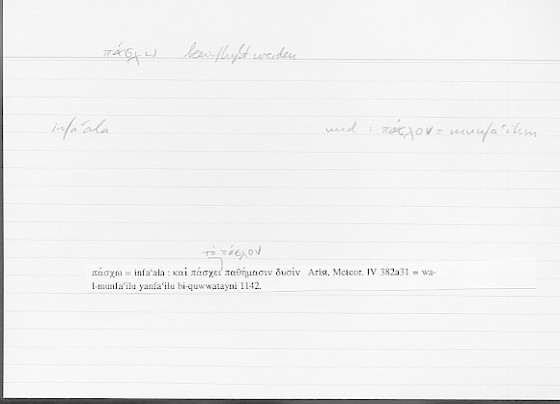 πάσχω beeinflußt werden
infaʿala und : πάσχον = munfaʿilun
τὸ πάσχον
πάσχω = infaʿala : καὶ πάσχει παθήμασιν δυσίν Arist. Meteor. IV 382a31 = wa-
l-munfaʿilu yanfaʿilu bi-quwwatayni 1142.